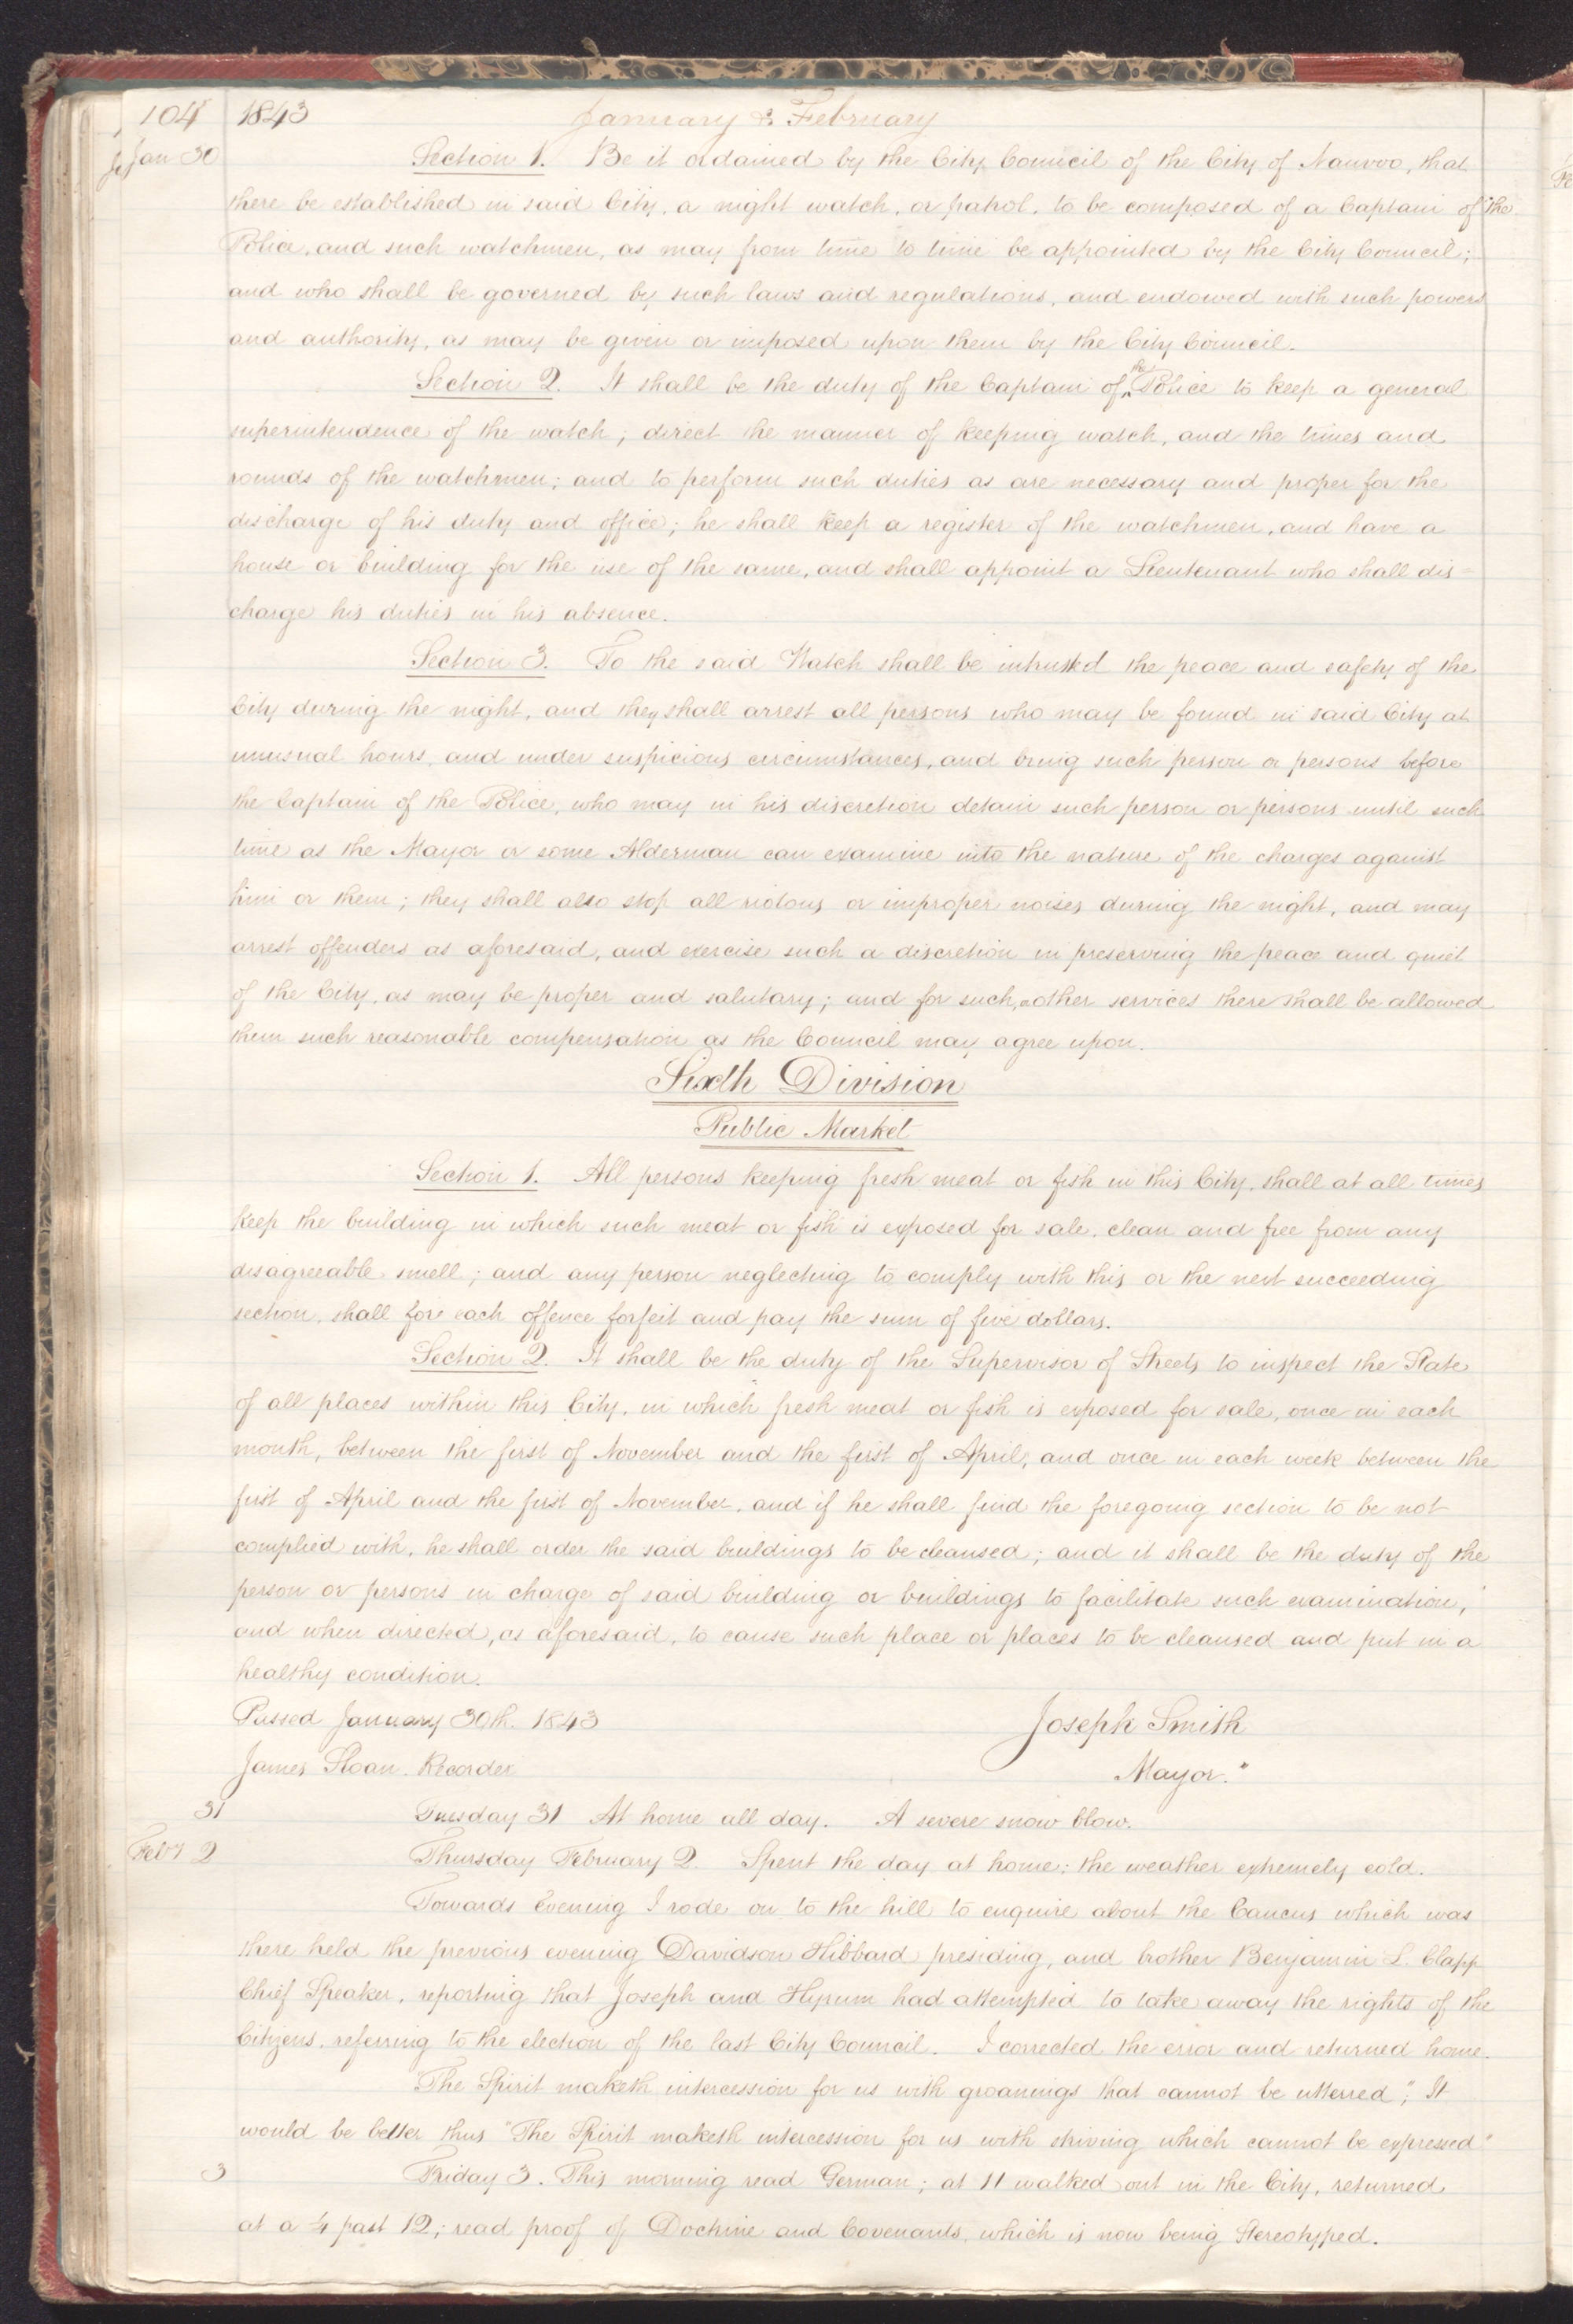 104 1843 January & February
Jan 30 Section 1. Be it ordained by the City Council of the City of Nauvoo, that
there be established in said City, a night watch, or patrol, to be composed of a Captain of the
Police, and such watchmen, as may from time to time be appointed by the City Council;
and who shall be governed by such laws and regulations, and endowed with such powers
and authority, as may be given or imposed upon them by the City Council.
Section 2. It shall be the duty of the Captain of the Police to keep a general
superintendence of the watch; direct the manner of keeping watch, and the times and
rounds of the watchmen; and to perform such duties as are necessary and proper for the
discharge of his duty and office; he shall keep a register of the watchmen, and have a
house or building for the use of the same, and shall appoint a Lieutenant who shall dis=
charge his duties in his absence.
Section 3. To the said Watch shall be intrusted the peace and safety of the
City during the night, and they shall arrest all persons who may be found in said City at
unusual hours, and under suspicious circumstances, and bring such person or persons before
the Captain of the Police, who may in his discretion detain such person or persons until such
time as the Mayor or some Alderman can examine into the nature of the charges against
him or them; they shall also stop all riotous or improper noises during the night, and may
arrest offenders as aforesaid, and exercise such a discretion in preserving the peace and quiet
of the City, as may be proper and salutary; and for such, other services there shall be allowed
them such reasonable compensation as the Council may agree upon.
Sixth Division
Public Market
Section 1. All persons keeping fresh meat or fish in this City, shall at all times
keep the building in which such meat or fish is exposed for sale, clean and free from any
disagreeable smell; and any person neglecting to comply with this or the next succeeding
section, shall for each offence forfeit and pay the sum of five dollars.
Section 2. It shall be the duty of the Supervisor of Streets to inspect the State
of all places within this City, in which fresh meat or fish is exposed for sale, once in each
month, between the first of November and the first of April, and once in each week between the
first of April and the first of November, and if he shall find the foregoing section to be not
complied with, he shall order the said buildings to be cleansed; and it shall be the duty of the
person or persons in charge of said building or buildings to facilitate such examination,
and when directed, as aforesaid, to cause such place or places to be cleansed and put in a
healthy condition.
Passed January 30th. 1843 Joseph Smith
James Sloan. Recorder Mayor."
31 Tuesday 31 At home all day. A severe snow blow.
Feby 2 Thursday February 2. Spent the day at home; the weather extremely cold.
Towards Evening I rode on to the hill to enquire about the Caucus which was
there held the previous evening Davidson Hibbard presiding, and brother Benjamin L. Clapp
Chief Speaker, reporting that Joseph and Hyrum had attempted to take away the rights of the
Citizens, referring to the election of the last City Council. I corrected the error and returned home.
"The Spirit maketh intercession for us with groanings that cannot be utterred"; It
would be better thus "The Spirit maketh intercession for us with striving which cannot be expressed"
3 Friday 3. This morning read German; at 11 walked out in the City, returned
at a ¼ past 12; read proof of Doctrine and Covenants, which is now being Stereotyped.